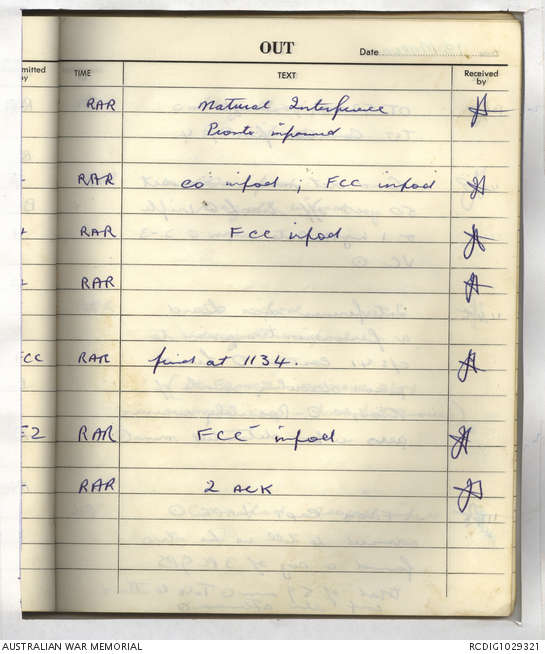 OUT
Date
mitted by
TIME
TEXT
Received by
RAR Natural Interference
Pronto informed
RAR CO infod; FCC infod
RAR FCC infod
RAR
CC RAR fired at 1134.
E2 RAR FCC infod
RAR 2 ACK
AUSTRALIAN WAR MEMORIAL
RCDIG1029321